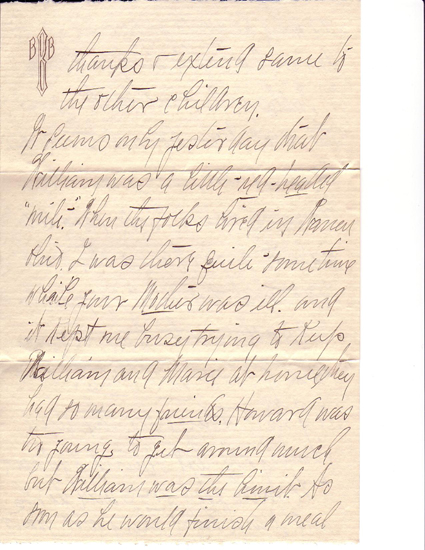 B B
thanks & extend same to
the other children.
It seems only yesterday that
William was a little red-headed
"mite." When the folks lived in
Ohio. I was there quite sometime
while your Mother was ill. and
it kept me busy trying to keep
William and Marie at home, they
had so many friends. Howard was
too young to get around much
but William was the limit. As
soon as he would finish a meal